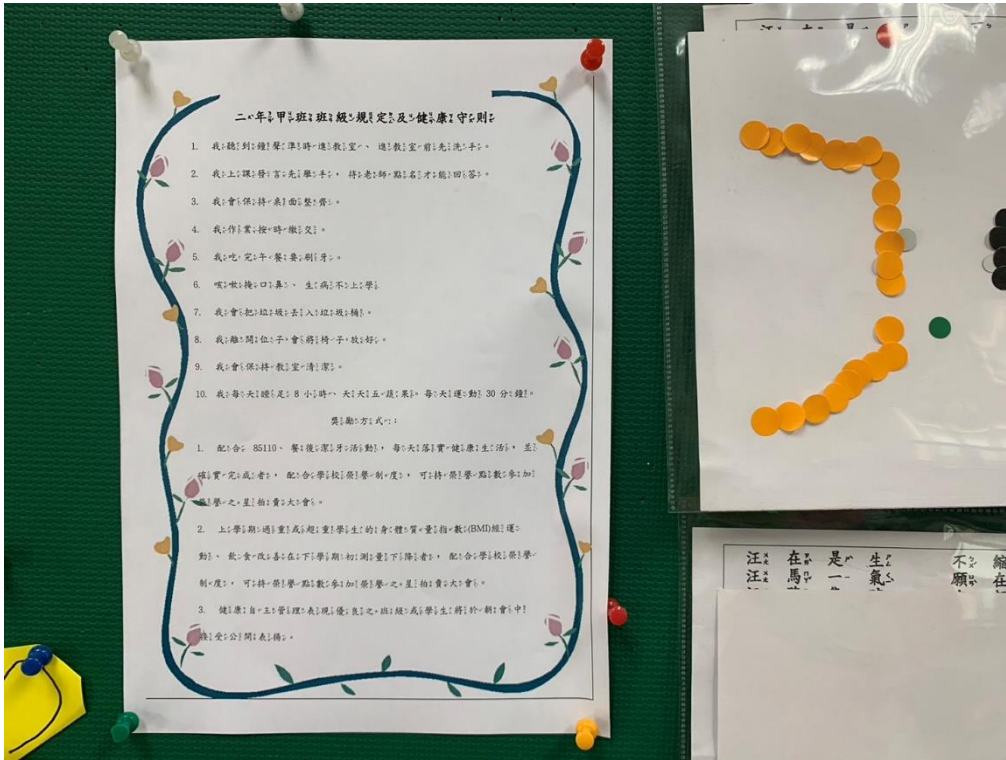 二年甲班班級規定及健康守則
1. 我聽到鐘聲準時進教室、進教室前先洗手。
2. 我上課發言先舉手,待老師點名才能回答。
3. 我會保持桌面整齊。
4. 我作業按時繳交。
5. 我吃完午餐要刷牙。
6. 咳嗽掩口鼻、生病不上學
7. 我會把垃圾丟入垃圾桶。
8. 我離開位子會將椅子放好。
9. 我會保持教室清潔。
10. 我每天睡足 8 小時、天天五蔬果。每天運動 30 分鐘。
獎勵方式:
1. 配合 85110、餐後潔牙活動,每天落實健康生活,並
確實完成者,配合學校榮譽制度,可持榮譽點數參加
譽之星拍賣大會。
2. 上學期過重或超重學生的身體質量指數(BMI)經運
動、飲食改善在下學期初測量下降者,配合學校榮譽
制度,可持榮譽點數參加榮譽之星拍賣大會。
3. 健康自主管理表現優良之班級或學生將於朝會中
接受公開表揚。
汪 在 是 生 不 縮
汪 馬 一 氣 願 在